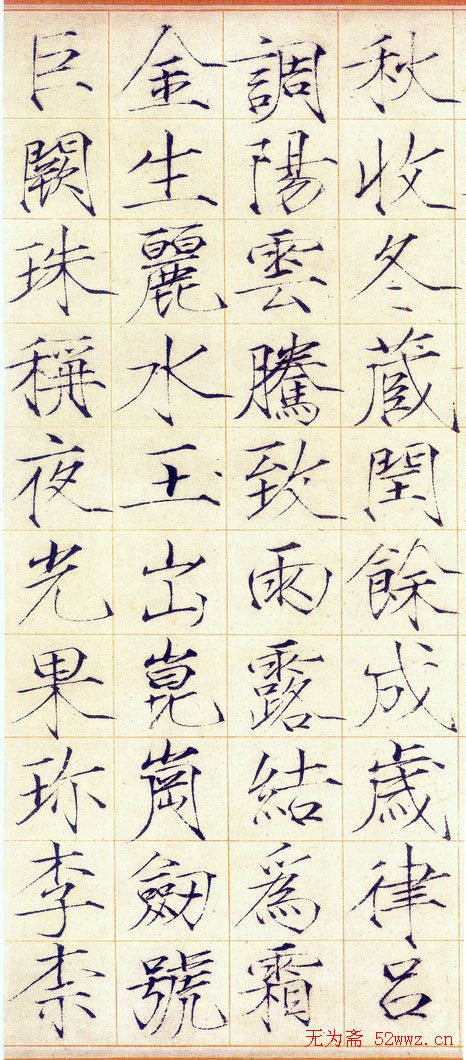 秋收冬蔵閏餘成歲律呂
調陽雲騰致雨露結爲霜
金生麗水玉出崑崗劒號
巨闕珠稱夜光果珎李柰
无为斋 52wwz.cn